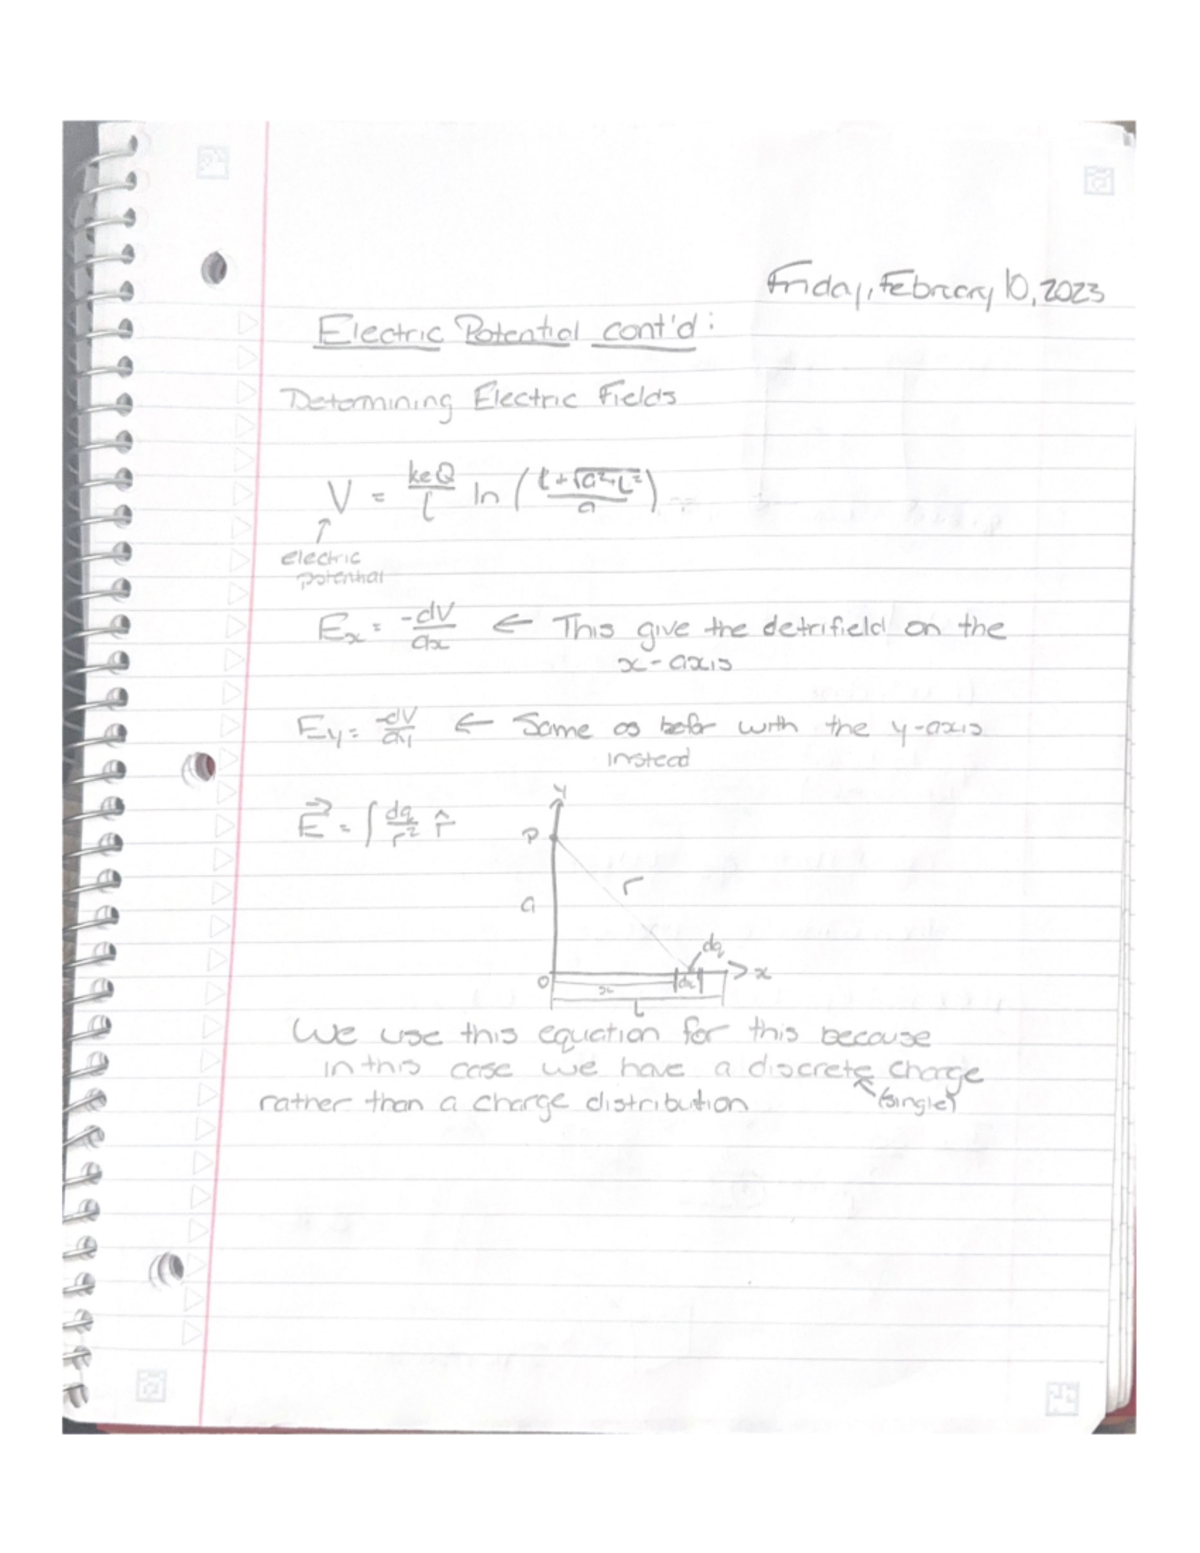 Friday, February 10, 2023
Electric Potential cont'd:
Determining Electric Fields
V = keQ/L ln (L+√a²+L²/a)
↑
electric
potential
Ex = -dV/dx ← This give the detrifield on the
x-axis
Ey = -dV/dy ← Same as befor with the y-axis
instead
E⃗ = ∫ dq/r² r̂
y
P
r
a
dq
x
O
x
dx
L
We use this equation for this because
in this case we have a discrete charge
rather than a charge distribution (single)